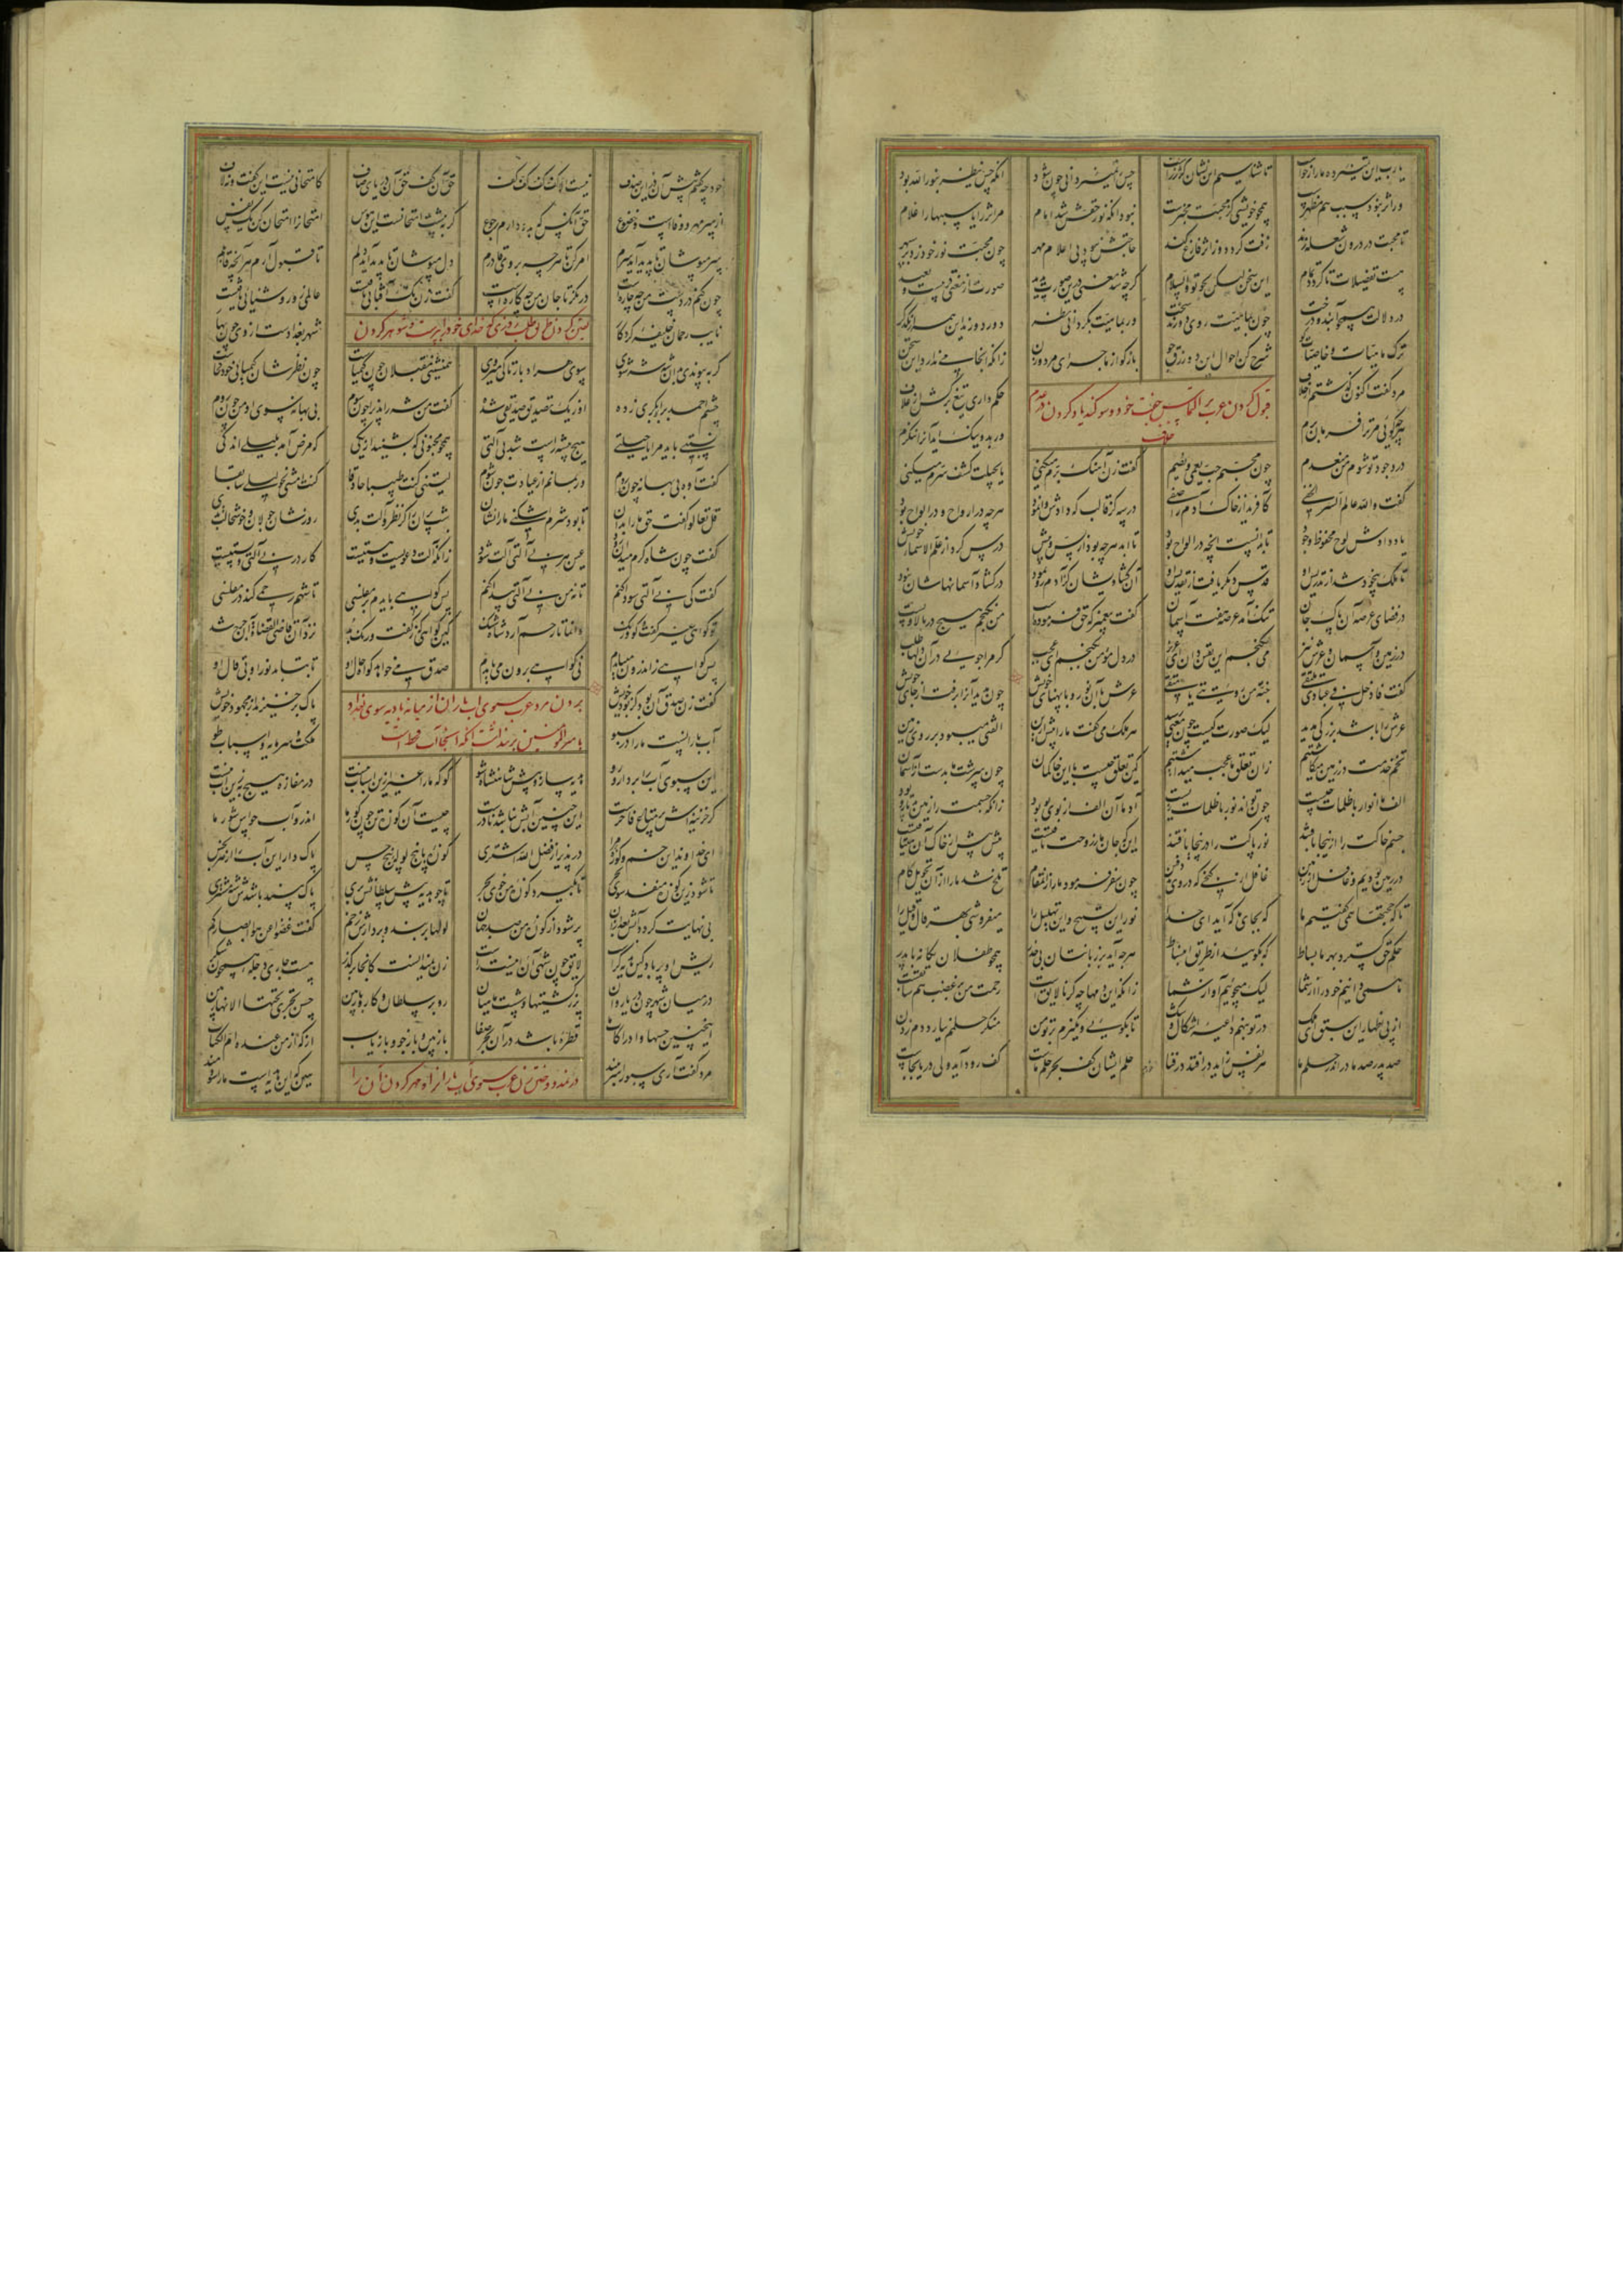 یا رب این تمییز ده ما را بخواست تا شناسیم آن نشان کژ ز راست حس را تمییز دانی چون شود آنکه حس ینظر بنور الله بود
ور اثر نبود سبب هم مظهرست همچو خویشی کز محبت مخبرست نبود آنکه نور حقش شد امام مر اثر را یا سببها را غلام
تا محبت در درون شعله زند زفت گردد وز اثر فارغ کند حاجتش نبود پی اعلام مهر چون محبت نور خود زد بر سپهر
هست تفضیلات تا گردد تمام این سخن لیکن بجو تو والسلام گرچه شد معنی درین صورت پدید صورت از معنی قریبست و بعید
در دلالت همچو آبند و درخت چون بماهیت روی دورند سخت ور بماهیت بگردانی نظر دور دورند این همه از یکدگر
ترک ماهیات و خاصیات گو شرح کن احوال این دو رزق جو بازگو از ماجرای مرد و زن زانکه انجامی ندارد این سخن
قبول کردن عرب التماس جفت خود و سوگند یاد کردن در عدم
خلاف
مرد گفت اکنون گذشتم از خلاف حکم داری تیغ برکش از غلاف
هرچه گویی مر ترا فرمان برم ور بد و نیک آید آنرا ننگرم
در وجود تو شوم من منعدم چون محبم حب یعمی و یصم گفت زن آهنگ برم میکنی یا بحیلت کشف سرم میکنی
گفت والله عالم السر الخفی کافرید از خاک آدم را صفی در سه گز قالب که دادش وانمود هرچه در ارواح و در الواح بود
یاد دادش لوح محفوظ وجود تا بدانست آنچه در الواح بود تا ابد هرچه بود از پس و پیش درس کرد از علم الاسماء خویش
تا ملک بیخود شد از تدریس او قدس دیگر یافت از تقدیس او آن گشادیشان کز آدم رو نمود در گشاد آسمانهاشان نبود
در فضای عرصه آن پاک جان تنگ آمد عرصه هفت آسمان گفت پیغمبر که حق فرموده است من نگنجم هیچ در بالا و پست
در زمین و آسمان و عرش نیز می نگنجم این یقین دان ای عزیز در دل مؤمن بگنجم ای عجب گر مرا جویی در آن دلها طلب
گفت فادخل فی عبادی تلتقی جنة من رؤیتی یا متقی عرش با آن نور و با پهنای خویش چون بدید آنرا برفت از جای خویش
عرش را باشد بزرگی بس مدید لیک صورت کیست چون معنی رسید هر ملک می گفت ما را پیش ازین الفتی میبود بر روی زمین
تخم خدمت در زمین میکاشتیم زان تعلق ما عجب میداشتیم کین تعلق چیست با این خاکمان چون سرشت ما بدست از آسمان
الف ما انوار با ظلمات چیست چون تواند نور با ظلمات زیست آدما آن الف از بوی تو بود زانکه جسمت را زمین بد تار و پود
جسم خاکت را ازینجا بافتند نور پاکت را درینجا یافتند این که جان ما ز روحت یافتست پیش پیش از خاک آن میتافتست
در زمین بودیم و غافل از زمین غافل از گنجی که در وی بد دفین چون سفر فرمود ما را زان مقام تلخ شد ما را از آن تحویل کام
تا که حجتها همی گفتیم ما که بجای ما که آید ای خدا نور این تسبیح و این تهلیل را میفروشی بهر قال و قیل را
حکم حق گسترد بهر ما بساط که بگویید از طریق انبساط هرچه آید بر زبانتان بی حذر همچو طفلان یگانه با پدر
لیک میخواهیم آواز شما زانکه این دمها چه گر نالایق است رحمت من بر غضب هم سابقست
از پی اظهار این سبق ای ملک در تو بنهم داعیه اشکال و شک تا بگویی و نگیرم بر تو من منکر حلمم نیارد دم زدن
صد پدر صد مادر اندر حلم ما هر نفس زاید در افتد در فنا حلم ایشان کف بحر حلم ماست کف رود آید ولی دریا بجاست
خود چه گویم پیش آن در این صدف نیست الا کف کف کف کف حق آن کف حق آن دریای صاف کامتحانی نیست این گفت و نه لاف
از سر مهر و وفا است و خضوع حق آنکس که بدو دارم رجوع گر به پیشت امتحانست این هوس امتحان را امتحان کن یک نفس
سر مپوشان تا پدید آید سرم امر کن تو هرچه بر وی قادرم دل مپوشان تا پدید آید دلم تا قبول آرم هر آنچه قابلم
چون کنم در دست من چه چاره است درنگر تا جان من چه کاره است گفت زن نک آفتابی تافتست عالمی زو روشنایی یافتست
تعیین کردن زن طریق طلب روزی کدخدای خود را و پذیرفتن شوهر کردن
نایب رحمان خلیفه کردگار شهر بغدادست از وی چون بهار
گر بپیوندی بدان شه شه شوی سوی هر ادبار تا کی میروی همنشینی مقبلان چون کیمیاست چون نظرشان کیمیایی خود کجاست
چشم احمد بر ابوبکری زده او ز یک تصدیق صدیق آمده گفت من شه را پذیرا چون شوم بی بهانه سوی او من چون روم
نسبتی باید مرا یا حیلتی هیچ پیشه راست شد بی آلتی همچو مجنونی که بشنید از یکی که مرض آمد بلیلی اندکی
گفت آوه بی بهانه چون روم ور بمانم از عیادت چون شوم لیتنی کنت طبیبا حاذقا کنت امشی نحو لیلی سابقا
قل تعالوا گفت حق ما را بدان تا بود شرم اشکنی ما را نشان شب پران را گر نظر و آلت بدی روزشان جولان و خوش حالت بدی
گفت چون شاه کرم میدان رود عین هر بی آلتی آلت شود زانکه آلت دعویست و هستیست کار در بی آلتی و پستیست
گفت کی بی آلتی سودا کنم تا نه من بی آلتی پیدا کنم پس گواهی بایدم بر مفلسی تا شهم رحمی کند در مفلسی
تو گواهی غیر گفت و گو و رنگ وانما تا رحم آرد شاه شنگ کین گواهی کز گفت و رنگ بد نزد آن قاضی القضاة آن جرح شد
پس گواهی ز اندرون میبایدم نی گواهی برون میبایدم صدق می خواهد گواه حال او تا بتابد نور او بی قال او
بردن مرد عرب سبوی آب باران از میان بادیه سوی بغداد
بامیر المؤمنین بر پنداشت آنکه آنجا آب قحط است
گفت زن صدق آن بود کز بود خویش پاک برخیزند از مجهود خویش
آب بارانست ما را در سبو ملکت و سرمایه و اسباب تو
این سبوی آب را بردار و رو هدیه ساز و پیش شاهنشاه شو گو که ما را غیر ازین اسباب نیست در مفازه هیچ به زین آب نیست
گر خزینه اش پر متاع فاخرست این چنین آبش نباشد نادرست چیست آن کوزه تن محصور ما اندرو آب حواس شور ما
ای خداوند این خم و کوزه مرا در پذیر از فضل الله اشتری کوزه با پنج لوله پنج حس پاک دار این آب را از هر نجس
تا شود زین کوزه منفذ سوی بحر تا بگیرد کوزه من خوی بحر تا چو هدیه پیش سلطانش بری پاک بیند باشدش شه مشتری
بی نهایت گردد آبش بعد از آن پر شود از کوزه من صد جهان لوله ها بربند و پر دارش ز خم گفت غضوا عن هوا ابصارکم
ریش او پر باد کین هدیه کراست لایق چون شهی آن اینست راست زن نمیدانست کانجا بر گذر هست جاری دجله همچون شکر
در میان شهر چون دریا روان پر ز کشتیها و شست ماهیان رو بر سلطان و کار و بار بین حس تجری تحتها الانهار بین
اینچنین حسها و ادراکات ما قطره باشد در آن بحر صفا باز بین و باز جو و باز یاب از که از من عنده ام الکتاب
در نمد دوختن زن عرب سبوی آب باران را و مهر کردن آن را
مرد گفت آری سبو را سر ببند هین که این هدیه است ما را سودمند